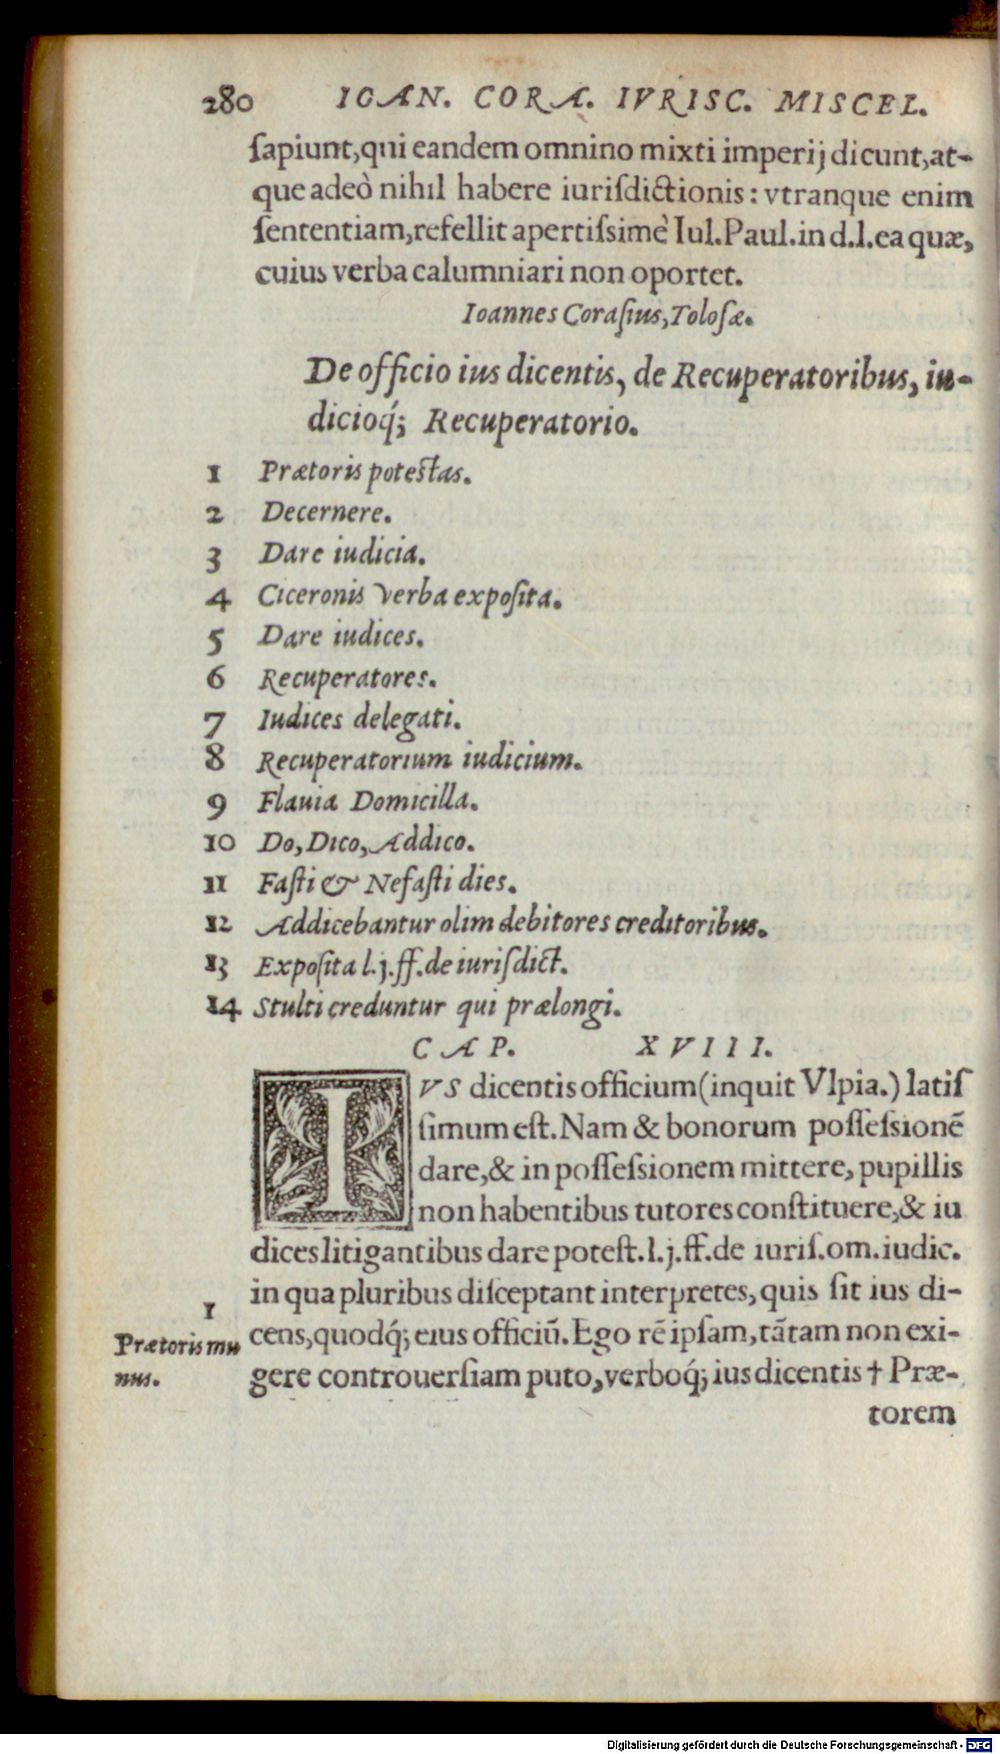 280 IOAN. CORA. IVRISC. MISCEL.
ſapiunt,qui eandem omnino mixti imperij dicunt,at-
que adeò nihil habere iuriſdictionis: vtranque enim
ſententiam,refellit apertiſsimè Iul.Paul.in d.l.ea quæ,
cuius verba calumniari non oportet.
Ioannes Coraſius,Toloſæ.
De officio ius dicentis, de Recuperatoribus, iu-
dicioq́; Recuperatorio.
1 Prætoris potestas.
2 Decernere.
3 Dare iudicia.
4 Ciceronis verba expoſita.
5 Dare iudices.
6 Recuperatores.
7 Iudices delegati.
8 Recuperatorium iudicium.
9 Flauia Domicilla.
10 Do, Dico, Addico.
11 Faſti & Nefaſti dies.
12 Addicebantur olim debitores creditoribus.
13 Expoſita l.j.ff.de iuriſdict.
14 Stulti creduntur qui prælongi.
CAP. XVIII.
IVS dicentis officium(inquit Vlpia.) latiſ
ſimum eſt.Nam & bonorum poſſeſsionẽ
dare,& in poſſeſsionem mittere, pupillis
non habentibus tutores conſtituere,& iu
dices litigantibus dare poteſt.l.j.ff.de iuriſ.om.iudic.
in qua pluribus diſceptant interpretes, quis ſit ius di-
cens,quodq́; eius officiũ.Ego rẽ ipſam,tãtam non exi-
gere controuerſiam puto,verboq́; ius dicentis † Præ-
1
Prætoris mu
nus.
torem
Digitalisierung gefördert durch die Deutsche Forschungsgemeinschaft - DFG